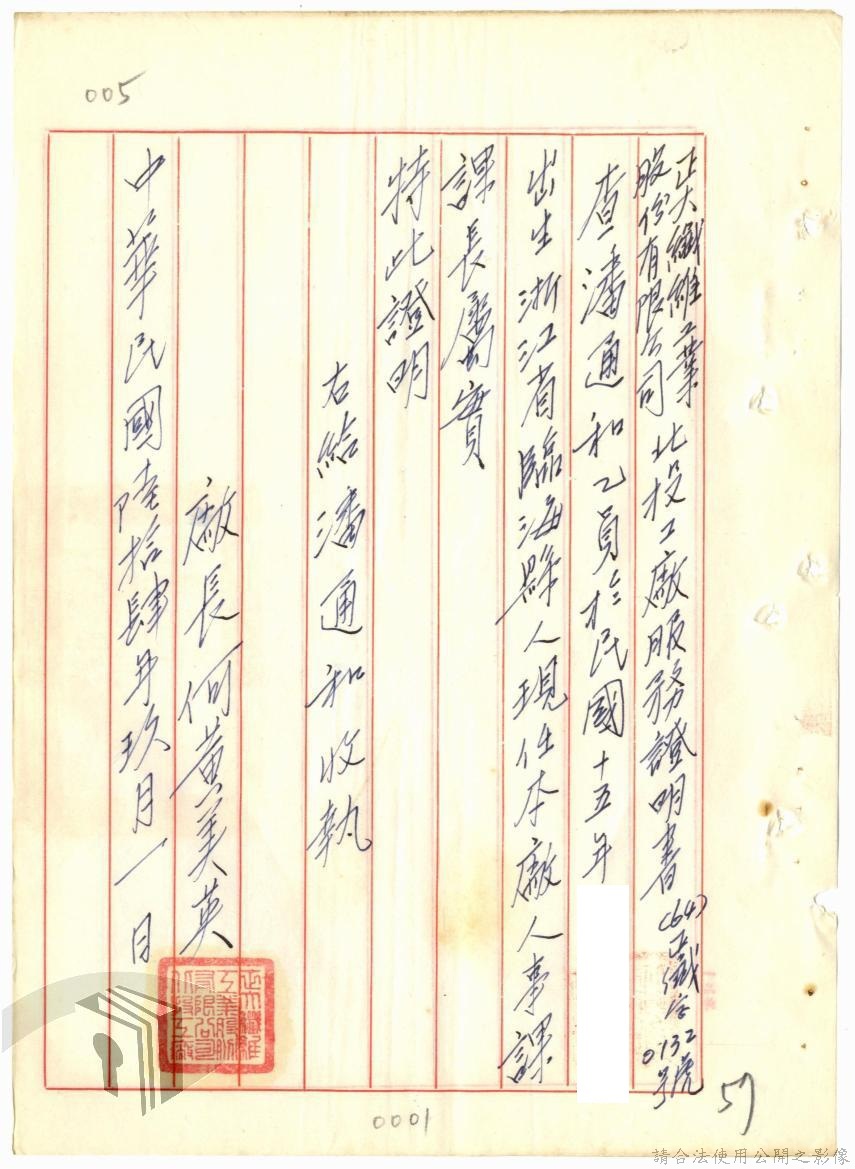 005
正大纖維工業
股份有限公司
北投工廠服務證明書
(64)正纖字
0132號
查潘通和乙員於民國十五年
出生浙江省臨海縣人現任本廠人事課
課長屬實
特此證明
右給潘通和收執
廠長何黃美英
中華民國陸拾肆年玖月一日
正大纖維
工業股份
有限公司
北投工廠
57
0001
請合法使用公開之影像